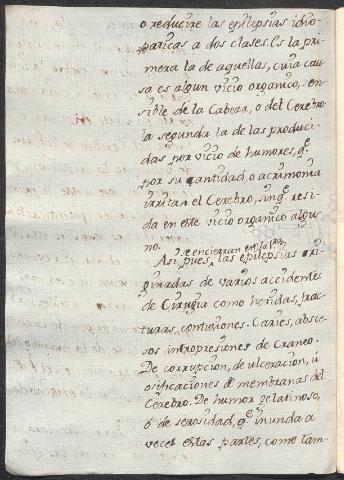 o reducire las epilepsias idio-
paticas a dos clases. Es la pri-
mera la de aquellas, cuia cau-
sa es algun vicio organico, sen-
sible de la Cabeza, o del Cerebro.
la segunda la de las produci-
das por vicio de humores, qe
por su cantidad, o acrimonia
irritan el Cerebro, sin qe resi-
da en este vicio organico algu-
no.
se encierran en la 1ra
Asi pues, las epilepsias ori-
ginadas de varios accidentes
de Cirugia como heridas, frac-
turas, contusiones. Caries, absce-
sos intropresiones de Craneo.
De corrupcion, de ulceracion, u
osificaciones de membranas del
Cerebro. De humor gelatinoso,
o de serosidad, qe inunda a
veces estas partes, como tam-